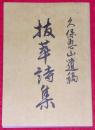 久保惠山遺稿
抜萃詩集